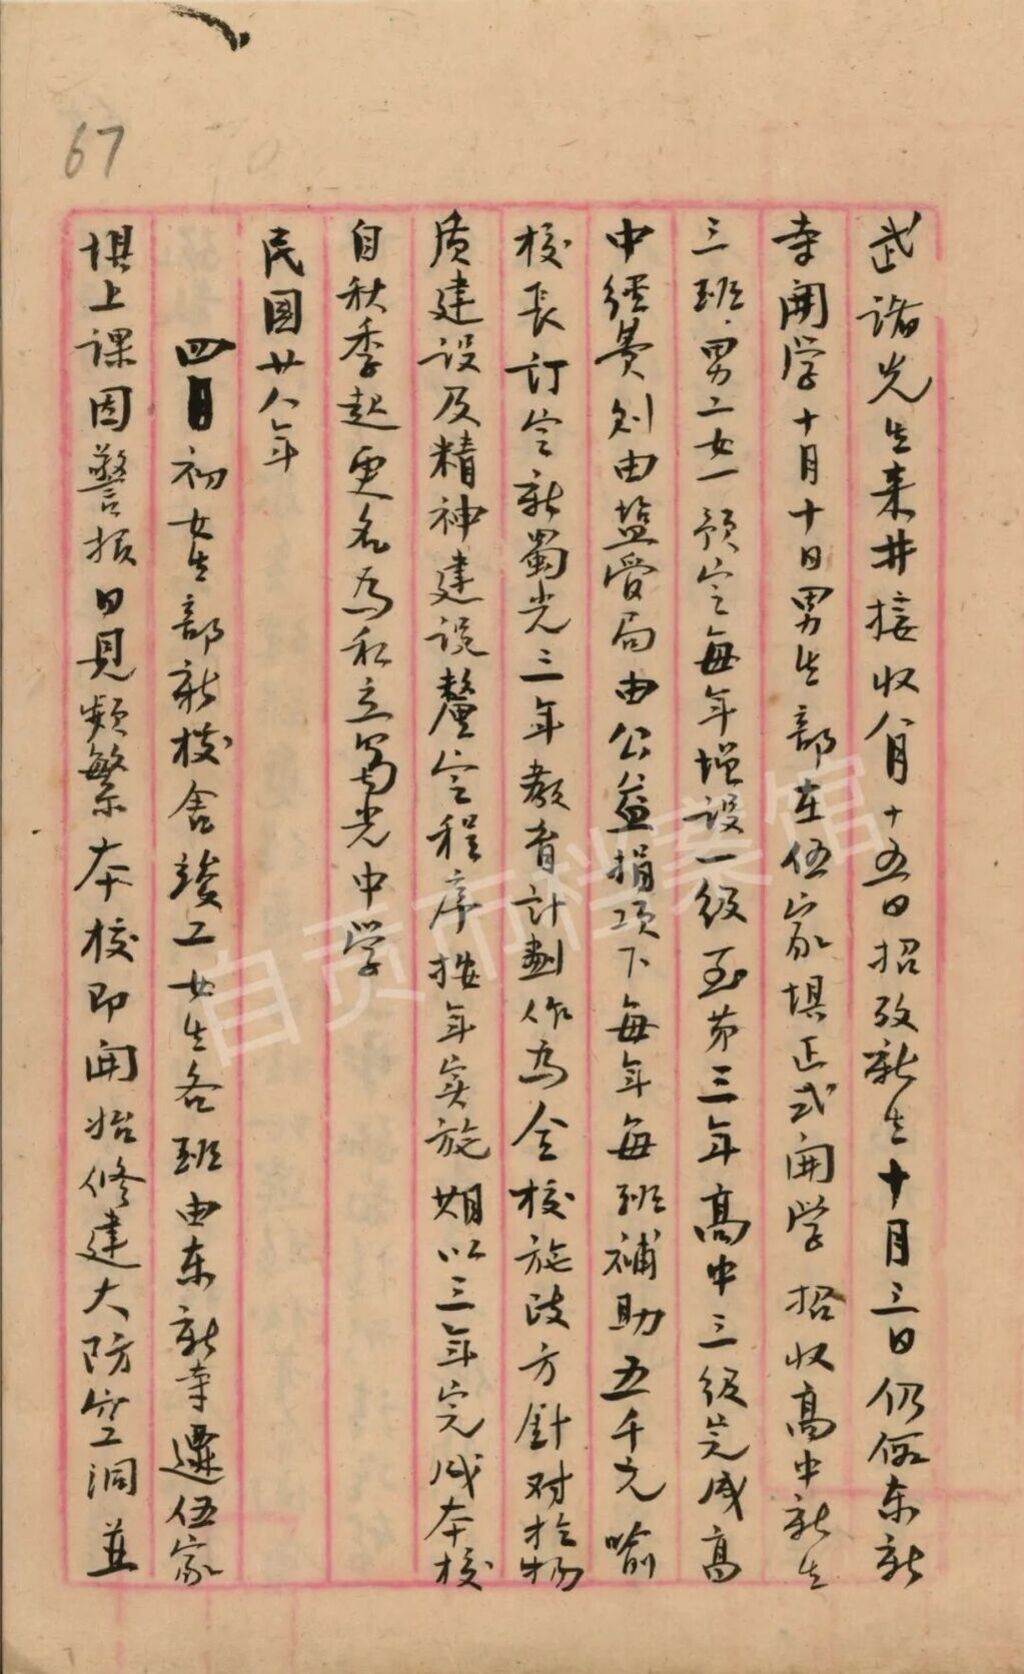 67
武諸先生来井接收八月十五日招攷新生十月三日仍假东新
寺開学十月十日男生部在伍家垻正式開学招收髙中新生
三班男二女一预定每年增設一级至第三年髙中三级完成髙
中經费则由盐管局由公益捐項下每年每班補助五千元喻
校长訂定新蜀光三年教育計劃作為全校施政方針对於物
质建设及精神建設釐定程序按年实施期以三年完成本校
自秋季起更名為私立蜀光中学
民国廿八年
四月初女生部新校舍竣工女生各班由东新寺遷伍家
垻上课因警报日見频繁本校即開始修建大防空洞並
自贡市档案馆